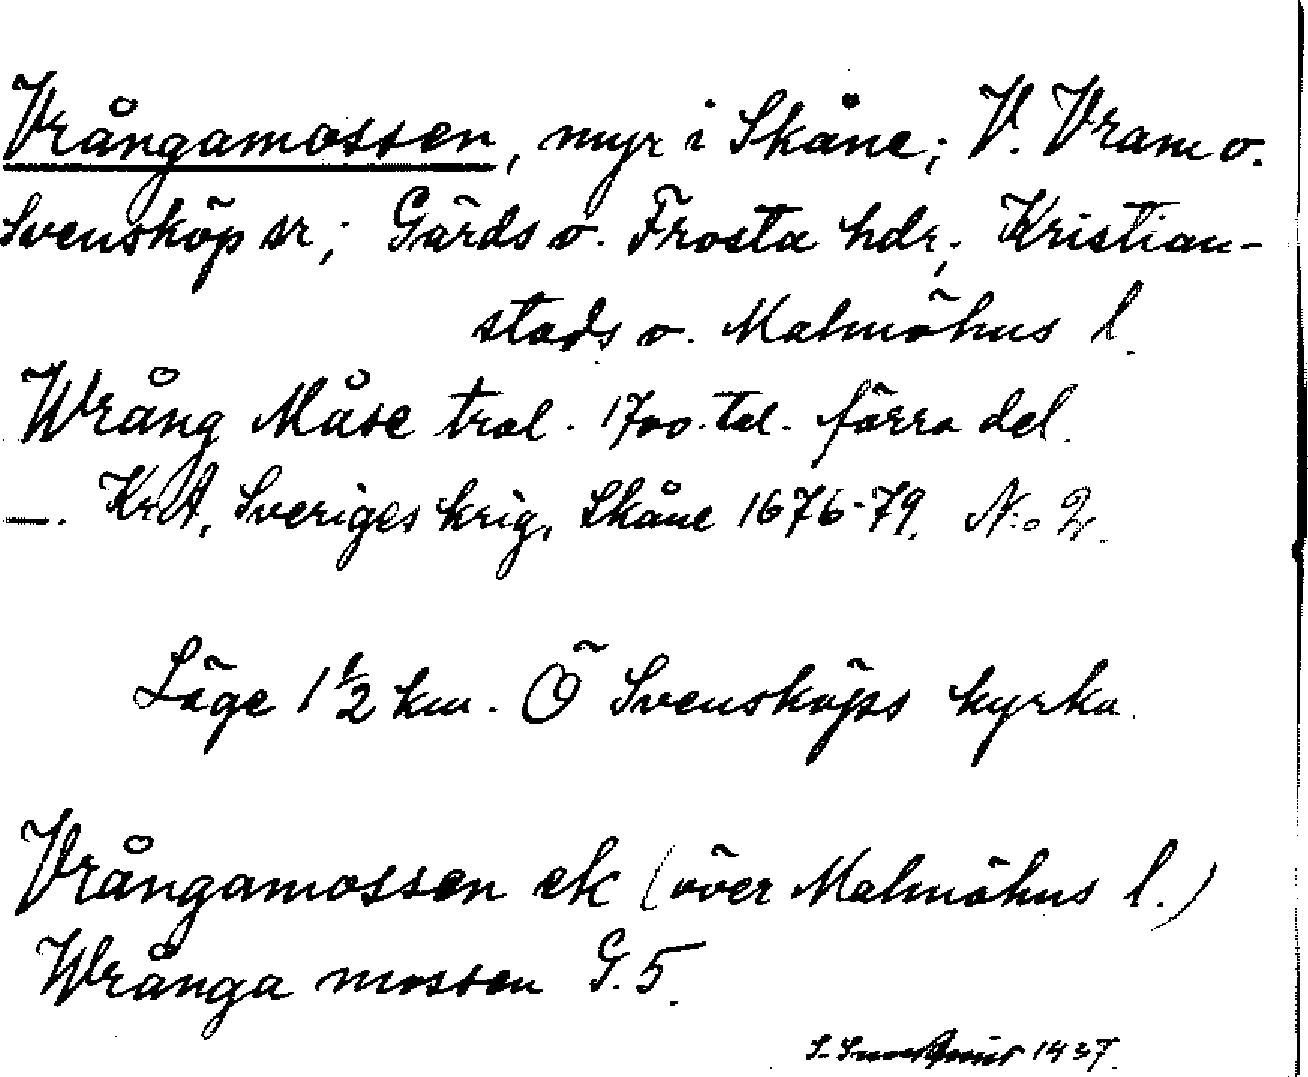 Vrångamossen, myr i Skåne; V. Vram o.
Svensköp sr; Gärds o. Frosta hdr; Kristian-
stads o. Malmöhus l.
Wrång Måse trol. 1700-tal. förra del.
—. KrA, Sveriges krig, Skåne 1676-79. N:o 2.
Läge 1 1/2 km. Ö Svensköps kyrka.
Vrångamossen ek (över Malmöhus l.)
Wrånga mossen G. 5.
S. 1937.